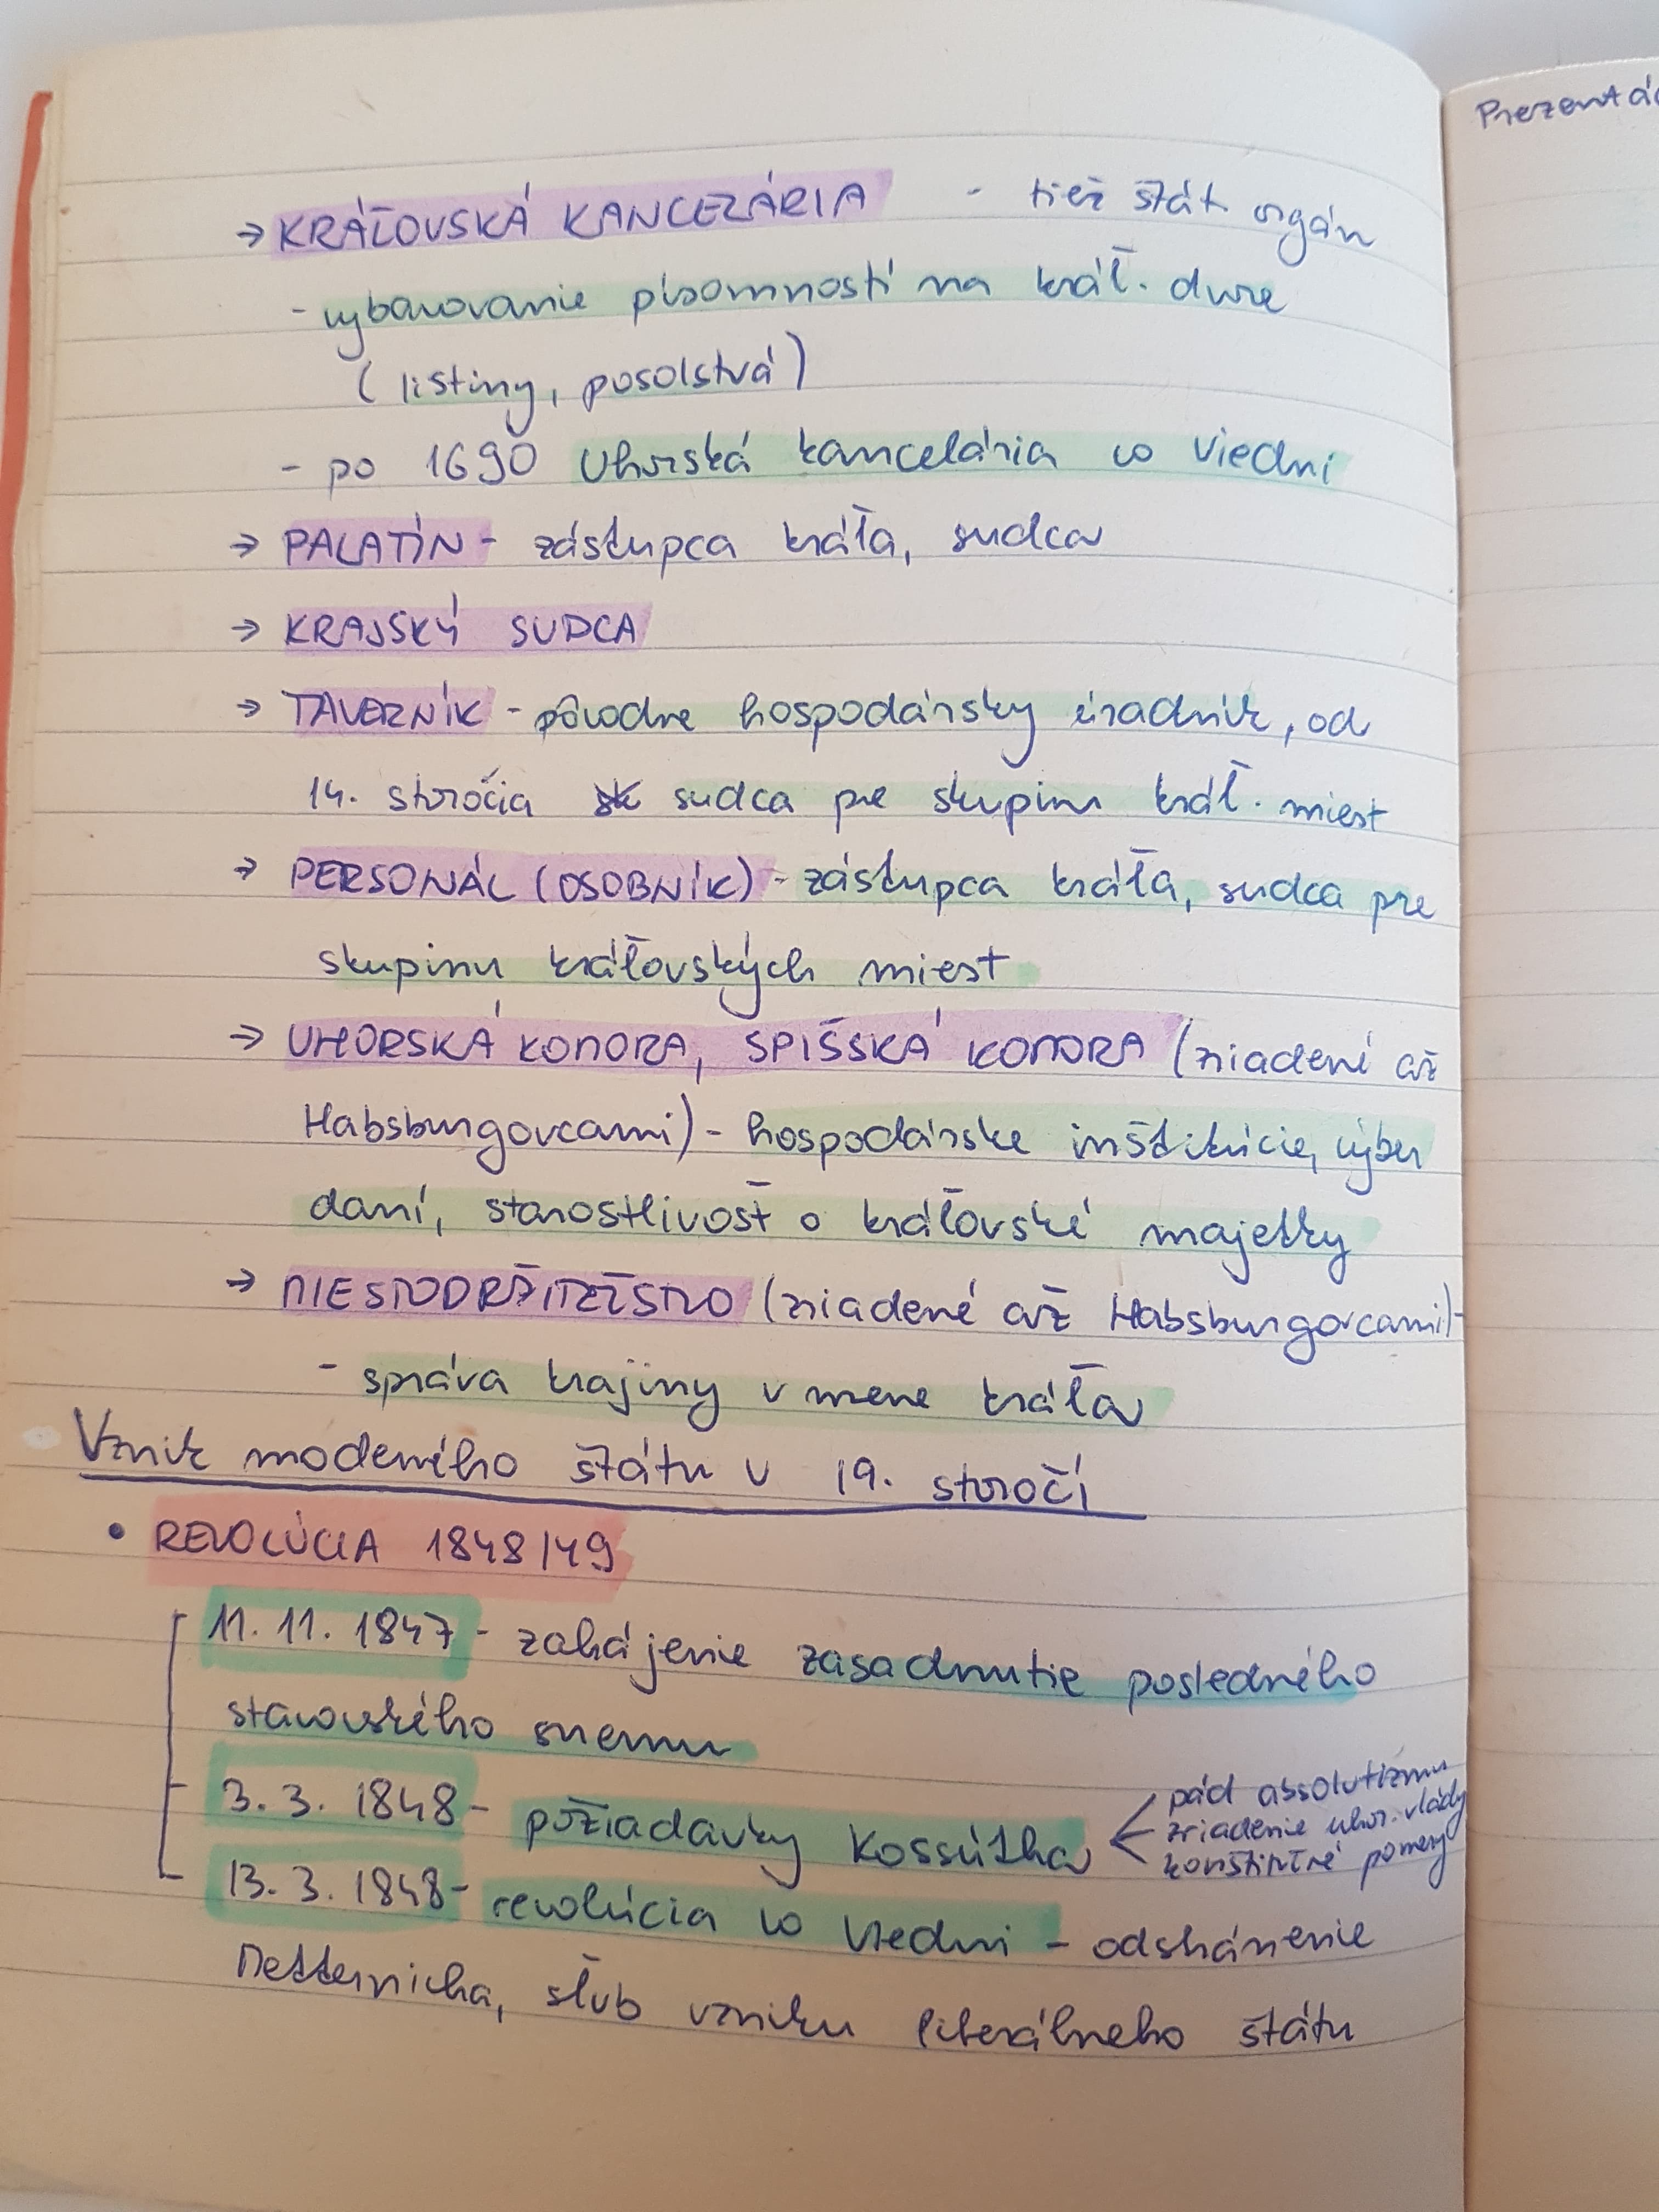 → KRÁĽOVSKÁ KANCELÁRIA - tiež štát. orgán
- vybavovanie písomností na kráľ. dvore
( listiny, posolstvá )
- po 1690 Uhorská kancelária vo Viedni
→ PALATÍN - zástupca kráľa, sudca
→ KRAJSKÝ SUDCA
→ TAVERNÍK - pôvodne hospodársky úradník, od
14. storočia sudca pre skupinu kráľ. miest
→ PERSONÁL (OSOBNÍK) - zástupca kráľa, sudca pre
skupinu kráľovských miest
→ UHORSKÁ KOMORA, SPIŠSKÁ KOMORA (zriadené až
Habsburgovcami) - hospodárske inštitúcie, výber
daní, starostlivosť o kráľovské majetky
→ MIESTODRŽITEĽSTVO (zriadené až Habsburgovcami) -
- správa krajiny v mene kráľa
Vznik moderného štátu v 19. storočí
• REVOLÚCIA 1848/49
11. 11. 1847 - zahájenie zasadnutie posledného
stavovského snemu
3. 3. 1848 - požiadavky Kossútha
pád absolutizmu
zriadenie uhor. vlády
konštitučné pomery
13. 3. 1848 - revolúcia vo Viedni - odstránenie
Metternicha, sľub vzniku liberálneho štátu